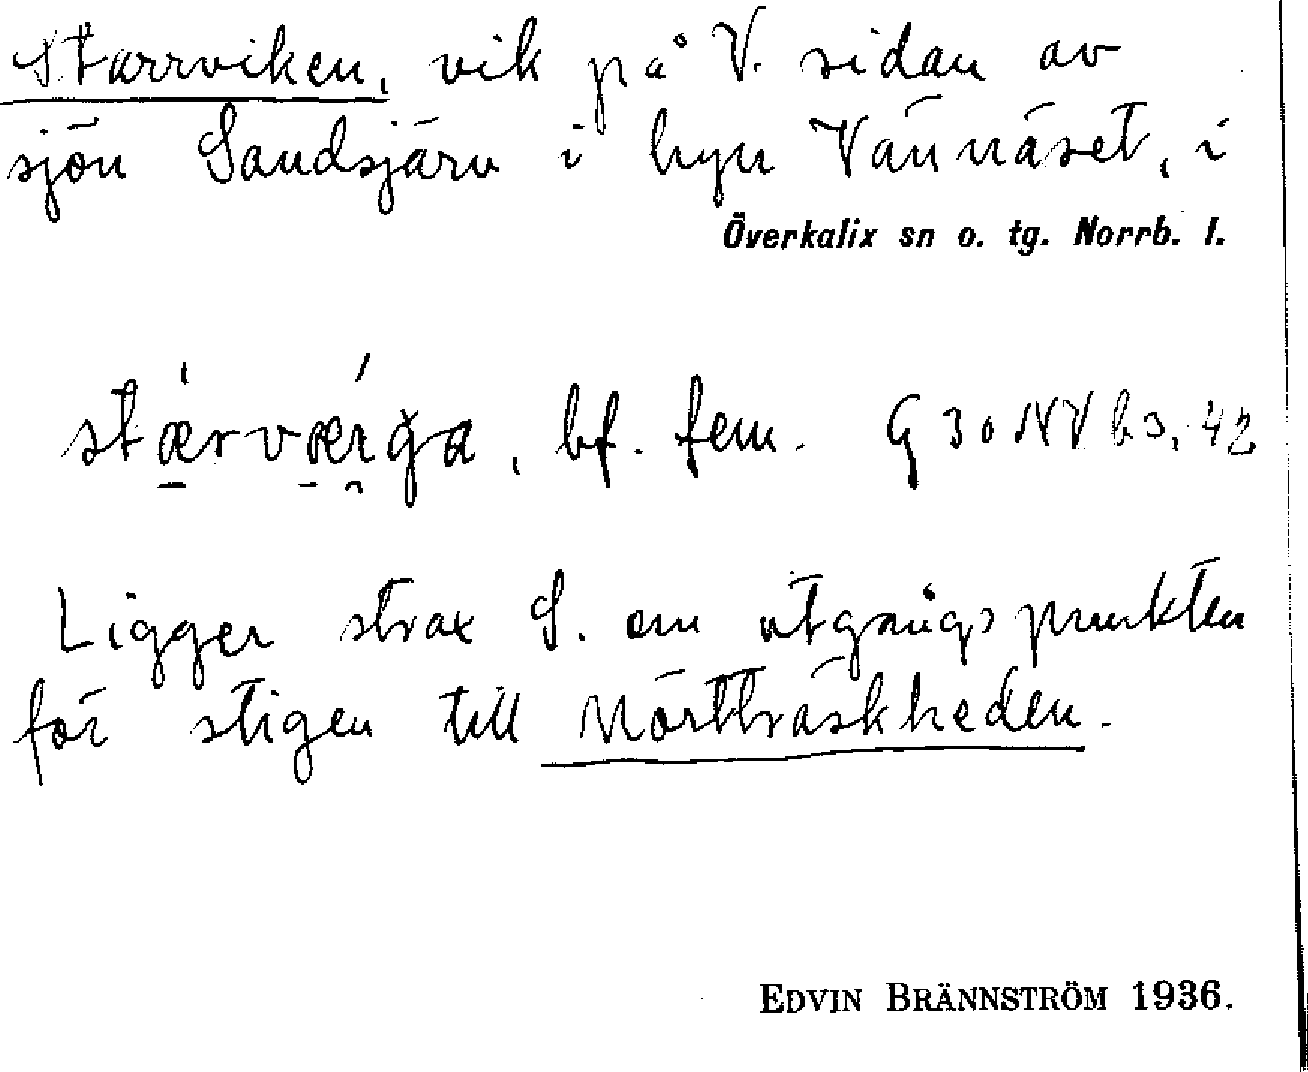 Starrviken, vik på V. sidan av
sjön Sandsjärv i byn Vännäset, i
Överkalix sn o. tg. Norrb. l.
stærværga, bf. fem. G 30 NV b 3, 42
Ligger strax S. om utgångspunkten
för stigen till Mörtträskheden.
EDVIN BRÄNNSTRÖM 1936.